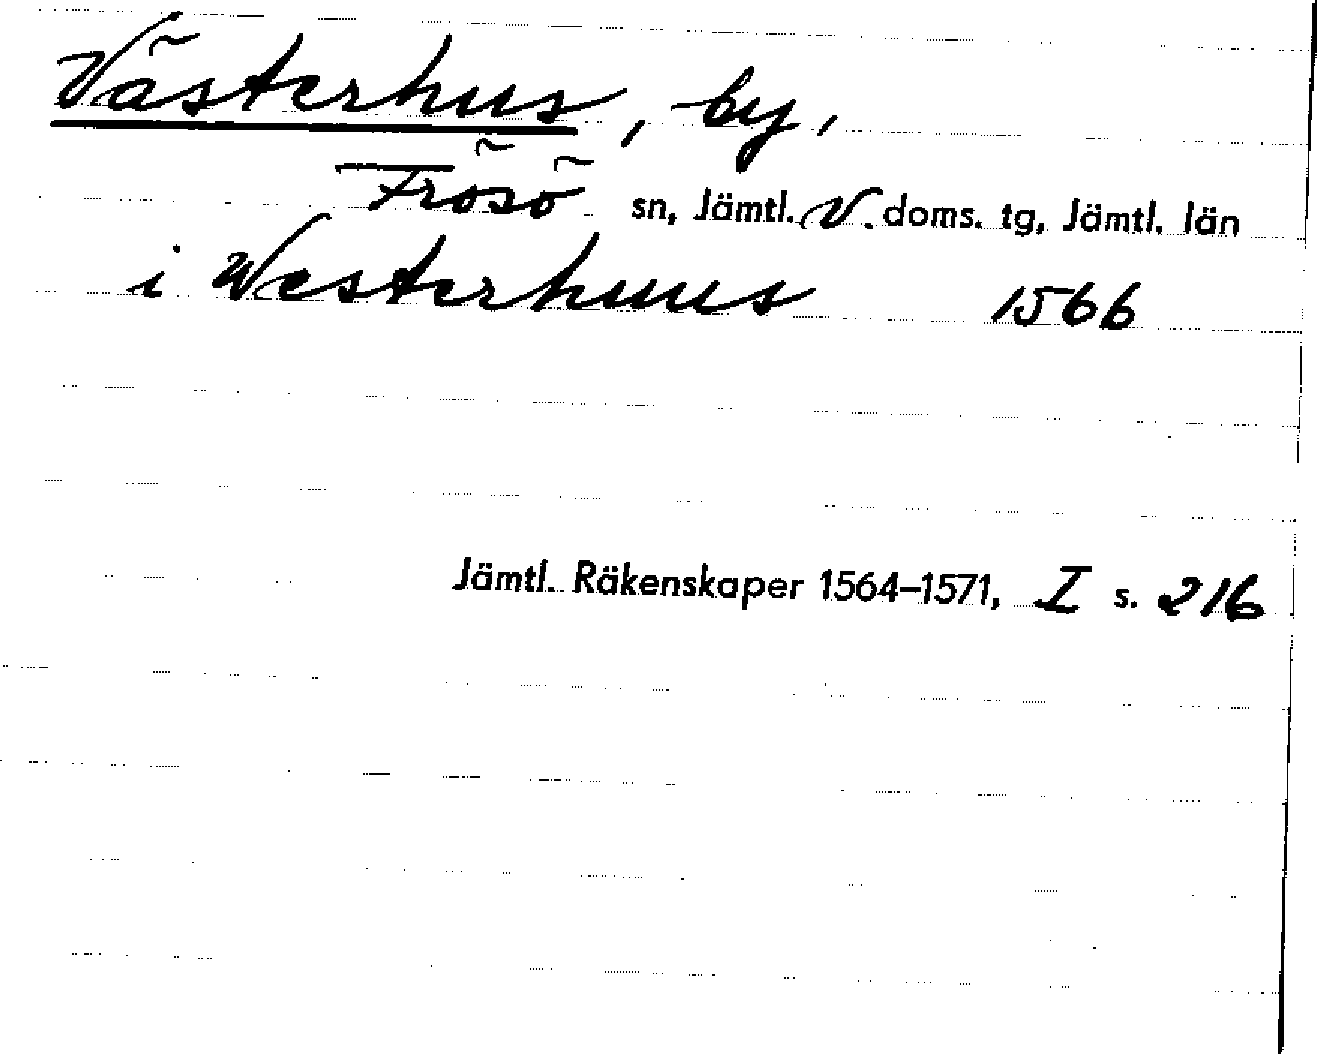 Västerhus, by,
Frösö sn, Jämtl. V. doms. tg, Jämtl. län
i Westerhuus 1566
Jämtl. Räkenskaper 1564–1571, I s. 216